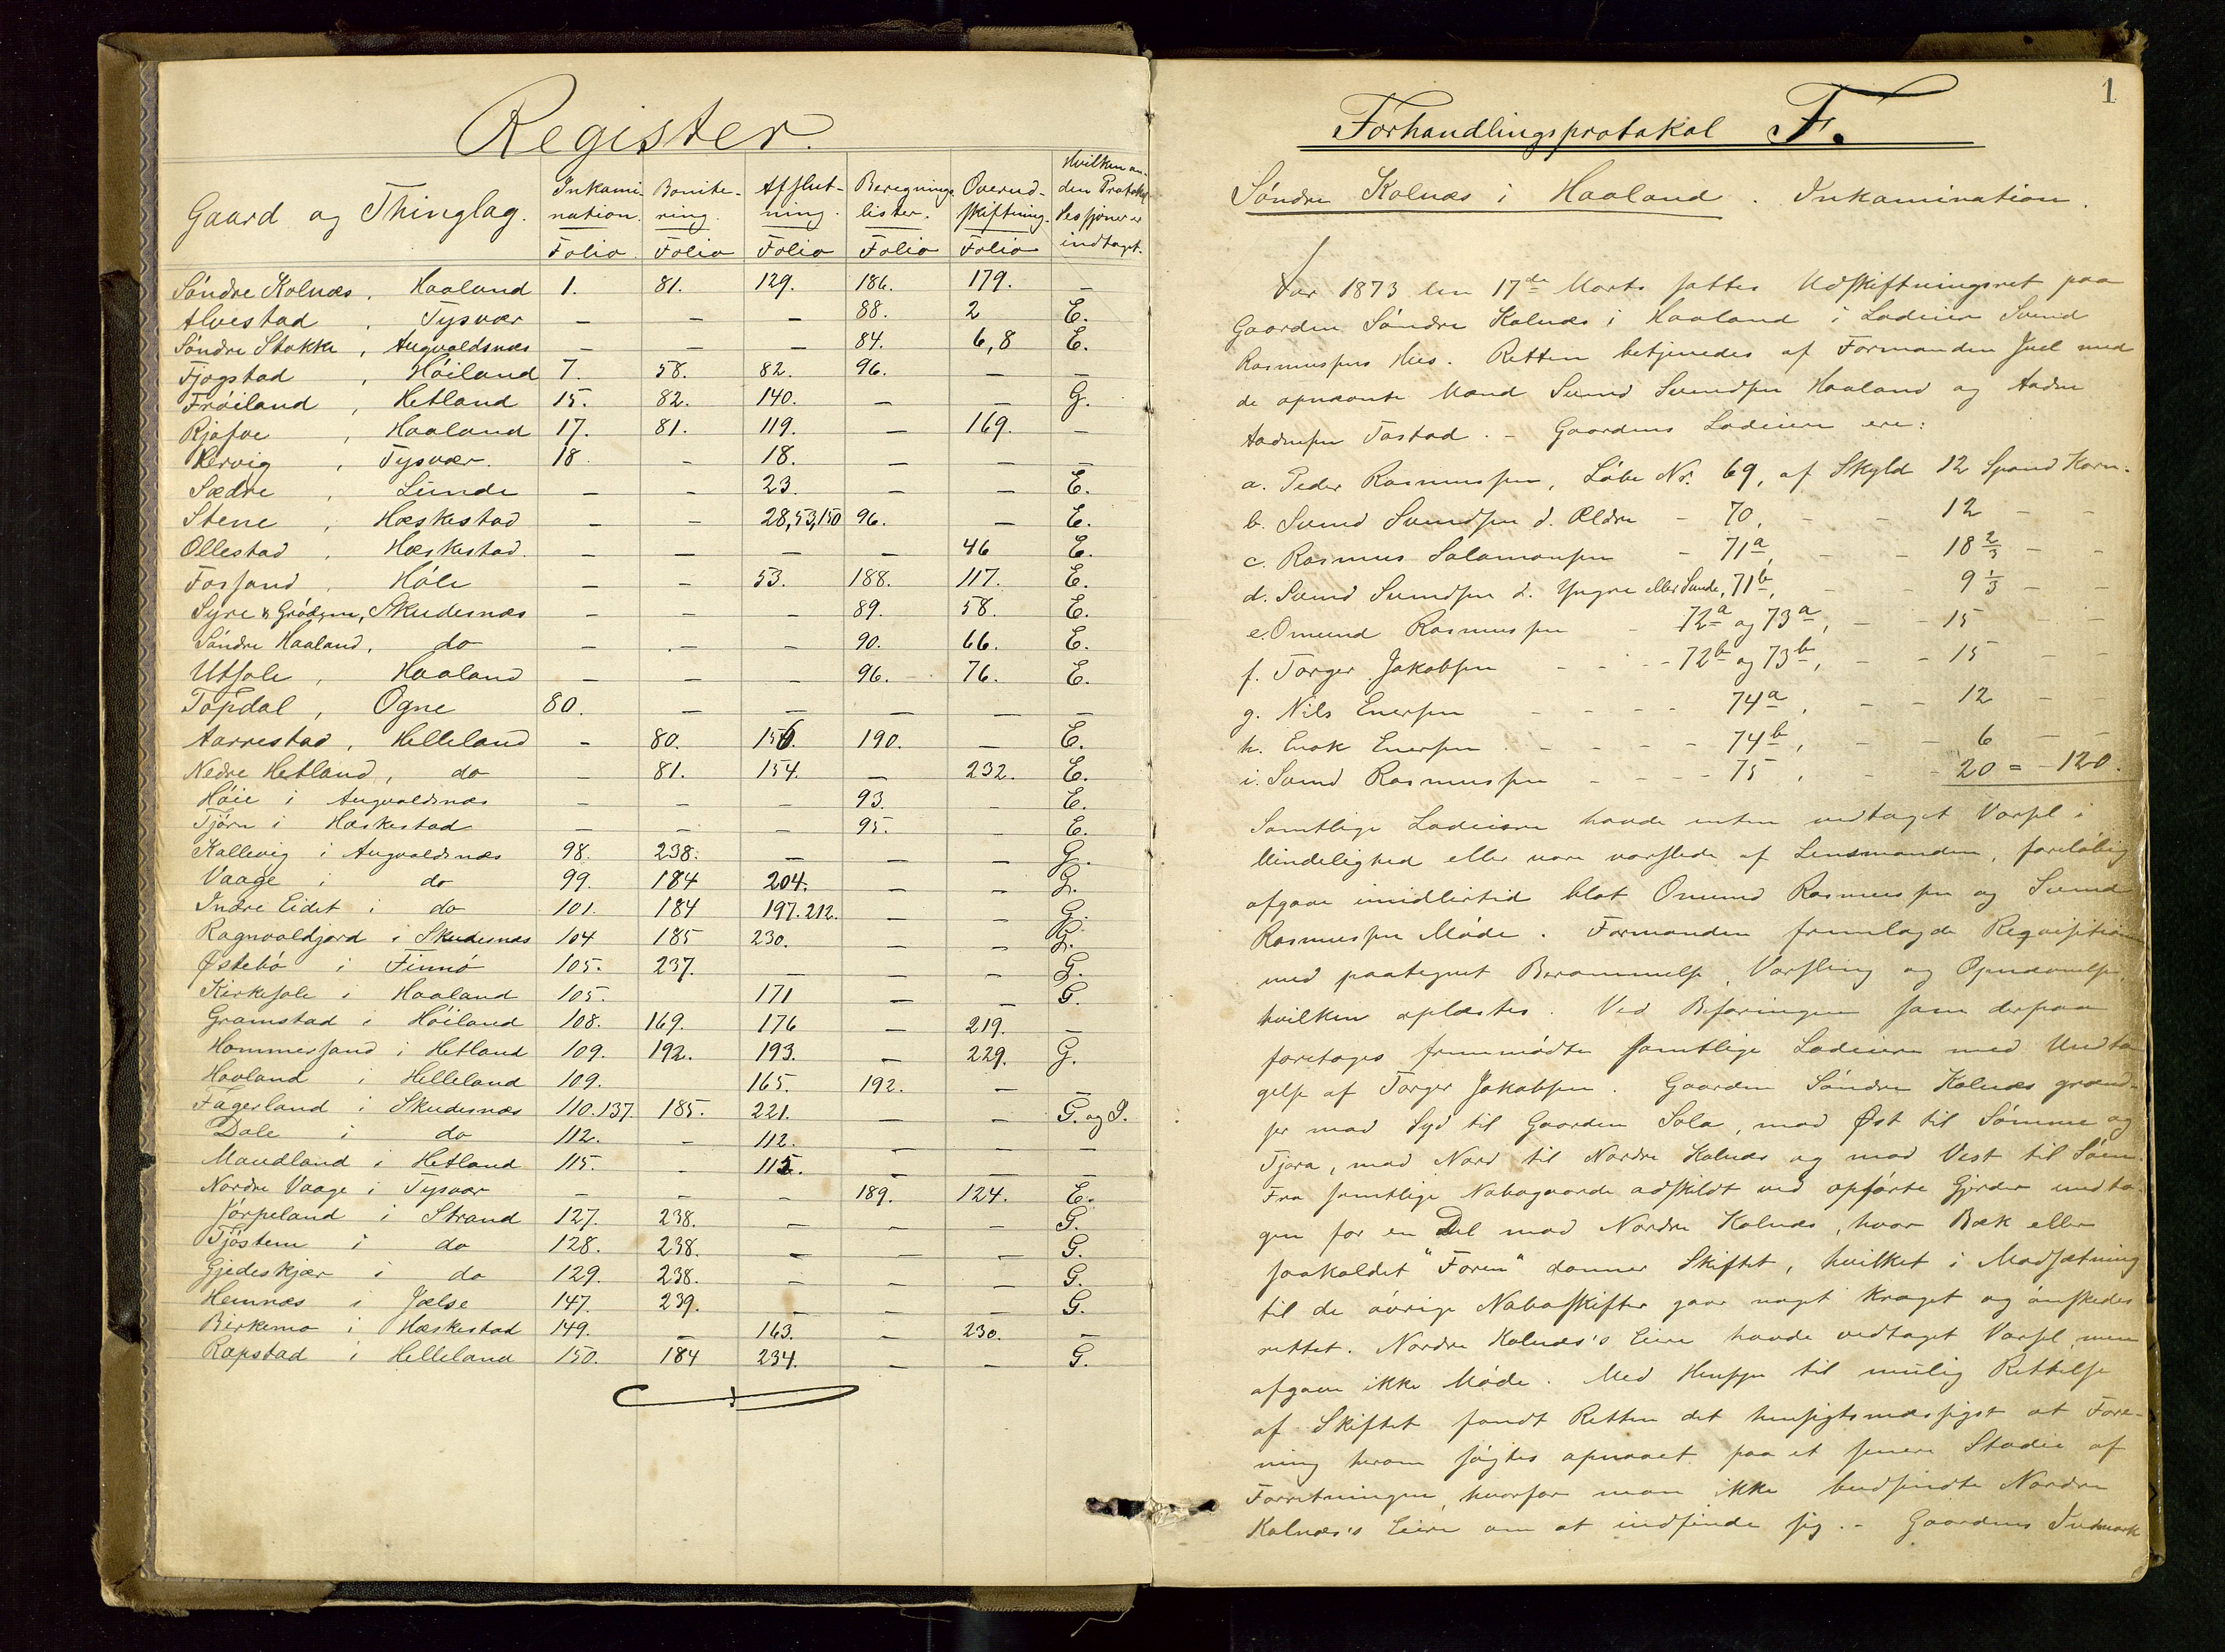 Register.
Gaard og Thinglag. Inkami- Bonite- Afslut- Beregnings Overud- Hvilken an-
nation. ring. ning. lister. skiftning. den Protokol
Folio. Folio Folio Folio Folio Sessjoner er
indtaget.
Söndre Kolnæs, Haaland 1. 81. 129. 186. 179. –
Alvestad, Tysvær – – – 88. 2 E.
Söndre Stokke, Augvaldsnæs – – – 84. 6,8 E.
Fjogstad, Höiland 7. 58. 82. 96. – –
Fröiland, Hetland 15. 82. 140. – – G.
Rjafoe, Haaland 17. 81. 119. – 169. –
Hervig, Tysvær. 18 – 18. – – –
Sædre, Lunde – – 23. – – E.
Stene, Hæskestad – – 28,53,150 96. – E.
Ollestad, Hæskestad. – – – – 46 E.
Forsand, Höle – – 53. 188. 117. E.
Syre & Grödem, Skudesnæs – – – 89. 58. E.
Söndre Haaland, do – – – 90. 66. E.
Utsole, Haaland – – – 96. 76. E.
Topdal, Ogne 80. – – – – –
Aarrestad, Helleland – 80. 156. 190. – E.
Nedre Hetland, do – 81. 154. – 232. E.
Höie i Augvaldsnæs – – – 93. – E.
Tjörn i Hæskestad – – – 95. – E.
Kallevig i Augvaldsnæs 98. 238. – – – G.
Vaage i do 99. 184 204. – – G.
Indre Eidet i do 101. 184 197.212. – – G.
Ragnvaldjord i Skudesnæs 104 185 230. – – G.
Østebö i Finnö 105. 237. – – – G.
Kirkesole i Haaland 105. 171 – – G.
Gramstad i Höiland 108. 169. 176 – 219. –
Hommersand i Hetland 109. 192. 193. – 229. G.
Hovland i Helleland 109. 165. 192. – –
Fagerland i Skudesnæs 110.137. 185. 221. – – G. og I.
Dale i do 112. – 112. – – –
Maudland i Hetland 115. – 115. – – –
Nordre Vaage i Tysvær – – – 189. 124. E.
Jörpeland i Strand 127. 238. – – – G.
Tjöstem i do 128. 238. – – – G.
Gjedeskjær i do 129. 238. – – – G.
Hemnæs i Jælse 147. 239. – – – G.
Birkemo i Hæskestad 149. – 163. – 230. –
Rapstad i Helleland 150. 184 234. – – G.
1
Forhandlingsprotokol F.
Söndre Kolnæs i Haaland. Inkamination.
Aar 1873 den 17de Marts sattes Udskiftningsret paa
Gaarden Söndre Kolnæs i Haaland i Lodeier Svend
Rasmussens Hus. Retten betjenedes af Formanden Juel med
de opnævnte Mænd Svend Svendsen Haaland og Aadne
Aadnesen Tastad. – Gaardens Lodeiere ere:
a. Peder Rasmussen, Löbe No. 69, af Skyld 12 Spand Korn.
b. Svend Svendsen d. Ældre – 70, – – 12 – –
c. Rasmus Salamonsen – 71a, – – 18 2/3 – –
d. Svend Svendsen d. Yngre eller Sunde, 71b, – – 9 1/3 – –
e. Omund Rasmussen – 72a og 73a, – – 15 – –
f. Torger Jakobsen – – – 72b og 73b, – – 15 – –
g. Nils Enersen – – – – 74a, – – 12 –
h. Enok Enersen – – – – 74b, – – 6 – –
i. Svend Rasmussen – – – – 75, – – 20 = – 120.
Samtlige Lodeiere havde enten vedtaget Varsel i
Mindelighed eller vare varslede af Lensmanden, forelöbig
afgave imidlertid blot Omund Rasmussen og Svend
Rasmussen Möde. Formanden fremlagde Reqvisitionen
med paategnet Berammelse, Varsling og Opnævnelse,
hvilken oplæstes. Ved Befaringen som derpaa
foretoges fremmödte samtlige Lodeiere med Undta-
gelse af Torger Jakobsen. Gaarden Söndre Kolnæs grænd-
ser mod Syd til Gaarden Sola, mod Øst til Sömme og
Tjora, mod Nord til Nordre Kolnæs og mod Vest til Söen.
Fra samtlige Nabogaarde adskildt ved opförte Gjerder undta-
gen for en Del mod Nordre Kolnæs, hvor Bæk eller
saakaldet "Foren" danner Skiftet, hvilket i Modsætning
til de övrige Naboskifter gaar noget kroget og önskedes
rettet. Nordre Kolnæs's Eiere havde vedtaget Varsel men
afgave ikke Möde. Med Hensyn til mulig Rettelse
af Skiftet fandt Retten det hensigtsmæssigst at Fore-
ning herom sögtes opnaaet paa et senere Stadie af
Forretningen, hvorfor man ikke budsendte Nordre
Kolnæs's Eiere om at indfinde sig. – Gaardens Indmark